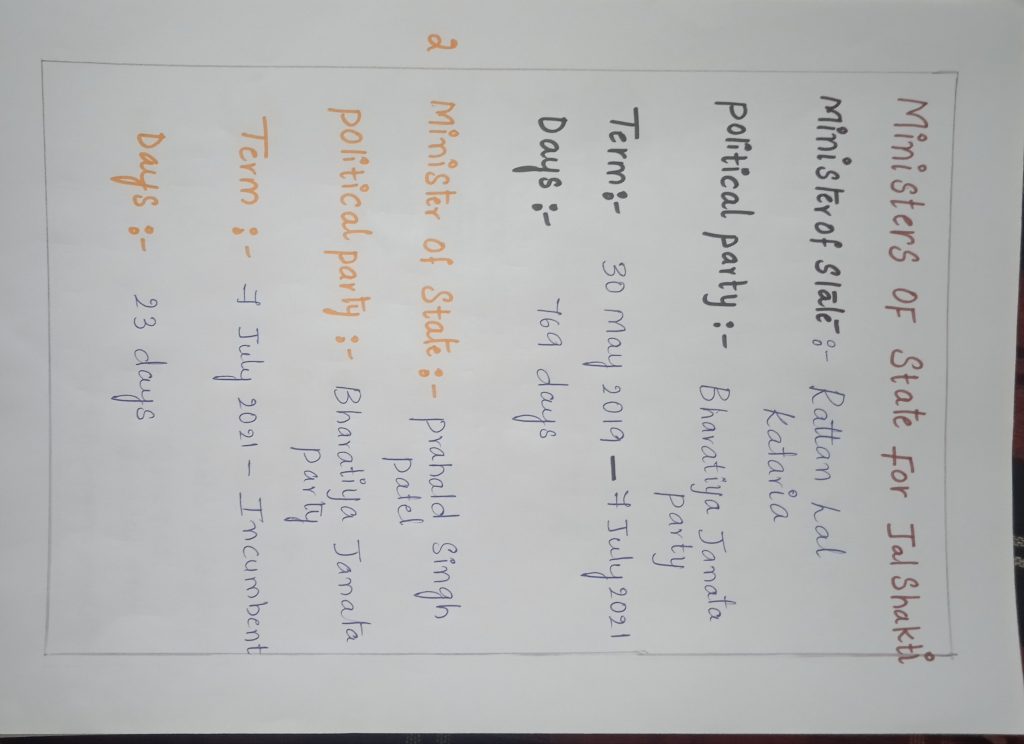 Ministers OF State For Jal Shakti
Minister of State :- Rattan Lal
Kataria
political party :- Bharatiya Janata
party
Term :- 30 May 2019 — 7 July 2021
Days :- 769 days
2 Minister of State :- prahald Singh
patel
political party :- Bharatiya Janata
party
Term :- 7 July 2021 - Incumbent
Days :- 23 days